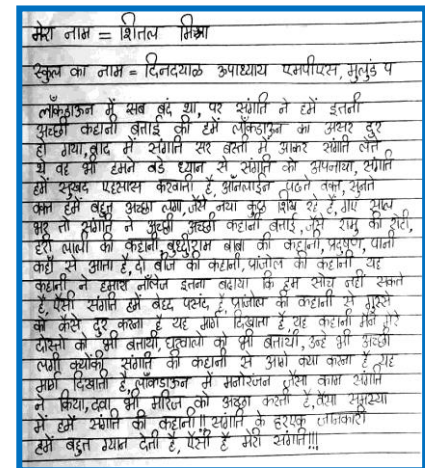 मेरा नाम = शितल मिश्रा
स्कुल का नाम = दिनदयाळ उपाध्याय एमपीएस, मुलुंड प
लॉकडाऊन में सब बंद था, पर संगति ने हमें इतनी
अच्छी कहानी बताई की हमें लॉकडाऊन का असर दुर
हो गया, बाद में संगति सर बस्ती में आकर संगति लेते
थे वह भी हमने बडे ध्यान से संगति को अपनाया, संगति
हमें सुखद एहसास करवाती है, ऑनलाइन पढते वक्त, सुनते
वक्त हमें बहुत अच्छा लगा, जैसे नया कुछ शिख रहे है, गए साल
भर तो संगति ने अच्छी अच्छी कहानी बताई, जैसे रामु की रोटी,
हरी लाली की कहानी, बुध्धुीराम बाबा की कहानी, प्रदुषण, पानी
कहाँ से आता है, दो बीज की कहानी, पांजोल की कहानी यह
कहानी ने हमारा नॉलेज इतना बढाया कि हम सोच नही सकते
है, ऐसी संगति हमें बेहद पसंद है, पांजोल की कहानी से गुस्से
को कैसे दुर करना है यह मार्ग दिखाता है, यह कहानी मैंने मेरे
दोस्तो को भी बतायी, घरवालो को भी बतायी, उन्हे भी अच्छी
लगी क्योंकी संगति की कहानी से आगे क्या करना है यह
मार्ग दिखाती है लॉकडाऊन में मनोरंजन जैसा काम संगति
ने किया, दवा भी मरिज को अच्छा करती है, वैसा समस्या
में हमें संगति की कहानी!! संगति के हरएक जानकारी
हमें बहुत ग्यान देती है, ऐसी है मेरी संगति!!!